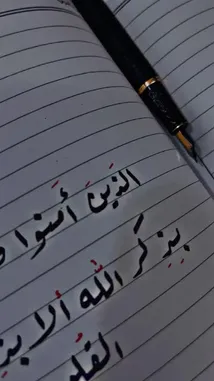 الَذِينَ أَمَنوا و
بِذِكر اللَّه ألا بذ
القلو